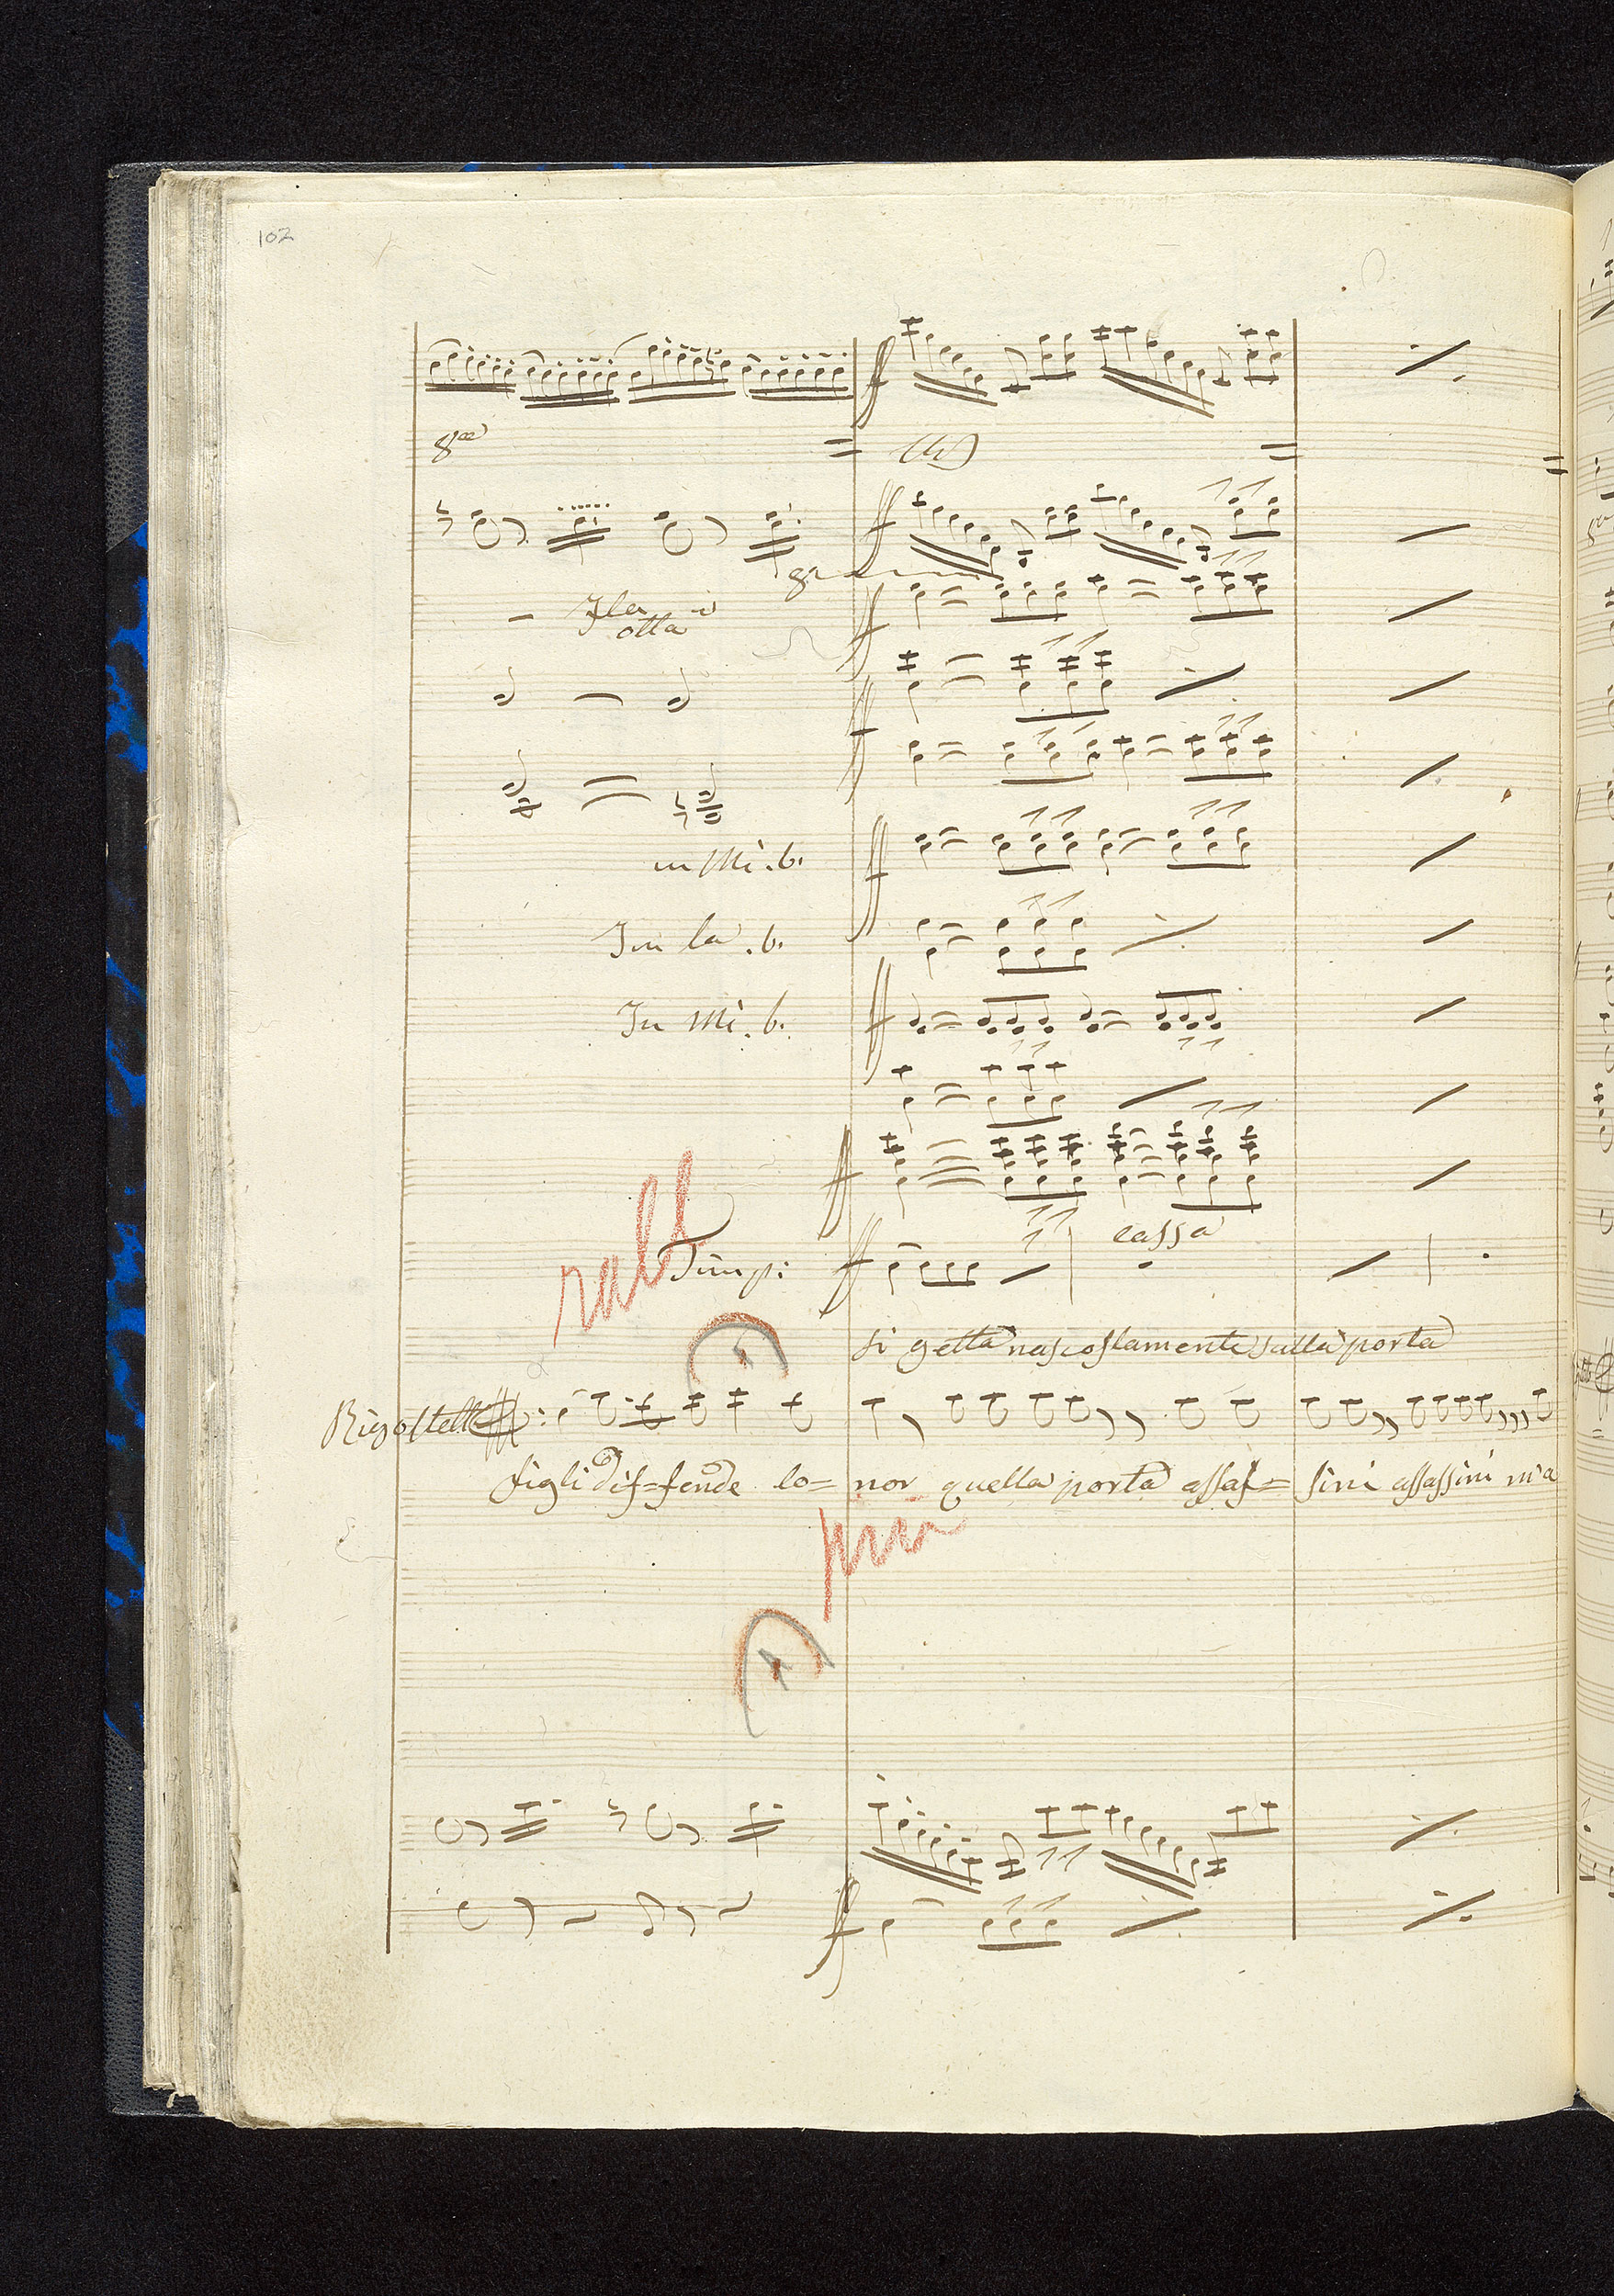 102
8va
Fla
otta
8va
in Mi. b.
In la. b.
In Mi. b.
rall
Timp:
cassa
si getta nascostamente sulla porta
figli dif=fende lo= nor quella porta assas= sini assassini m'a